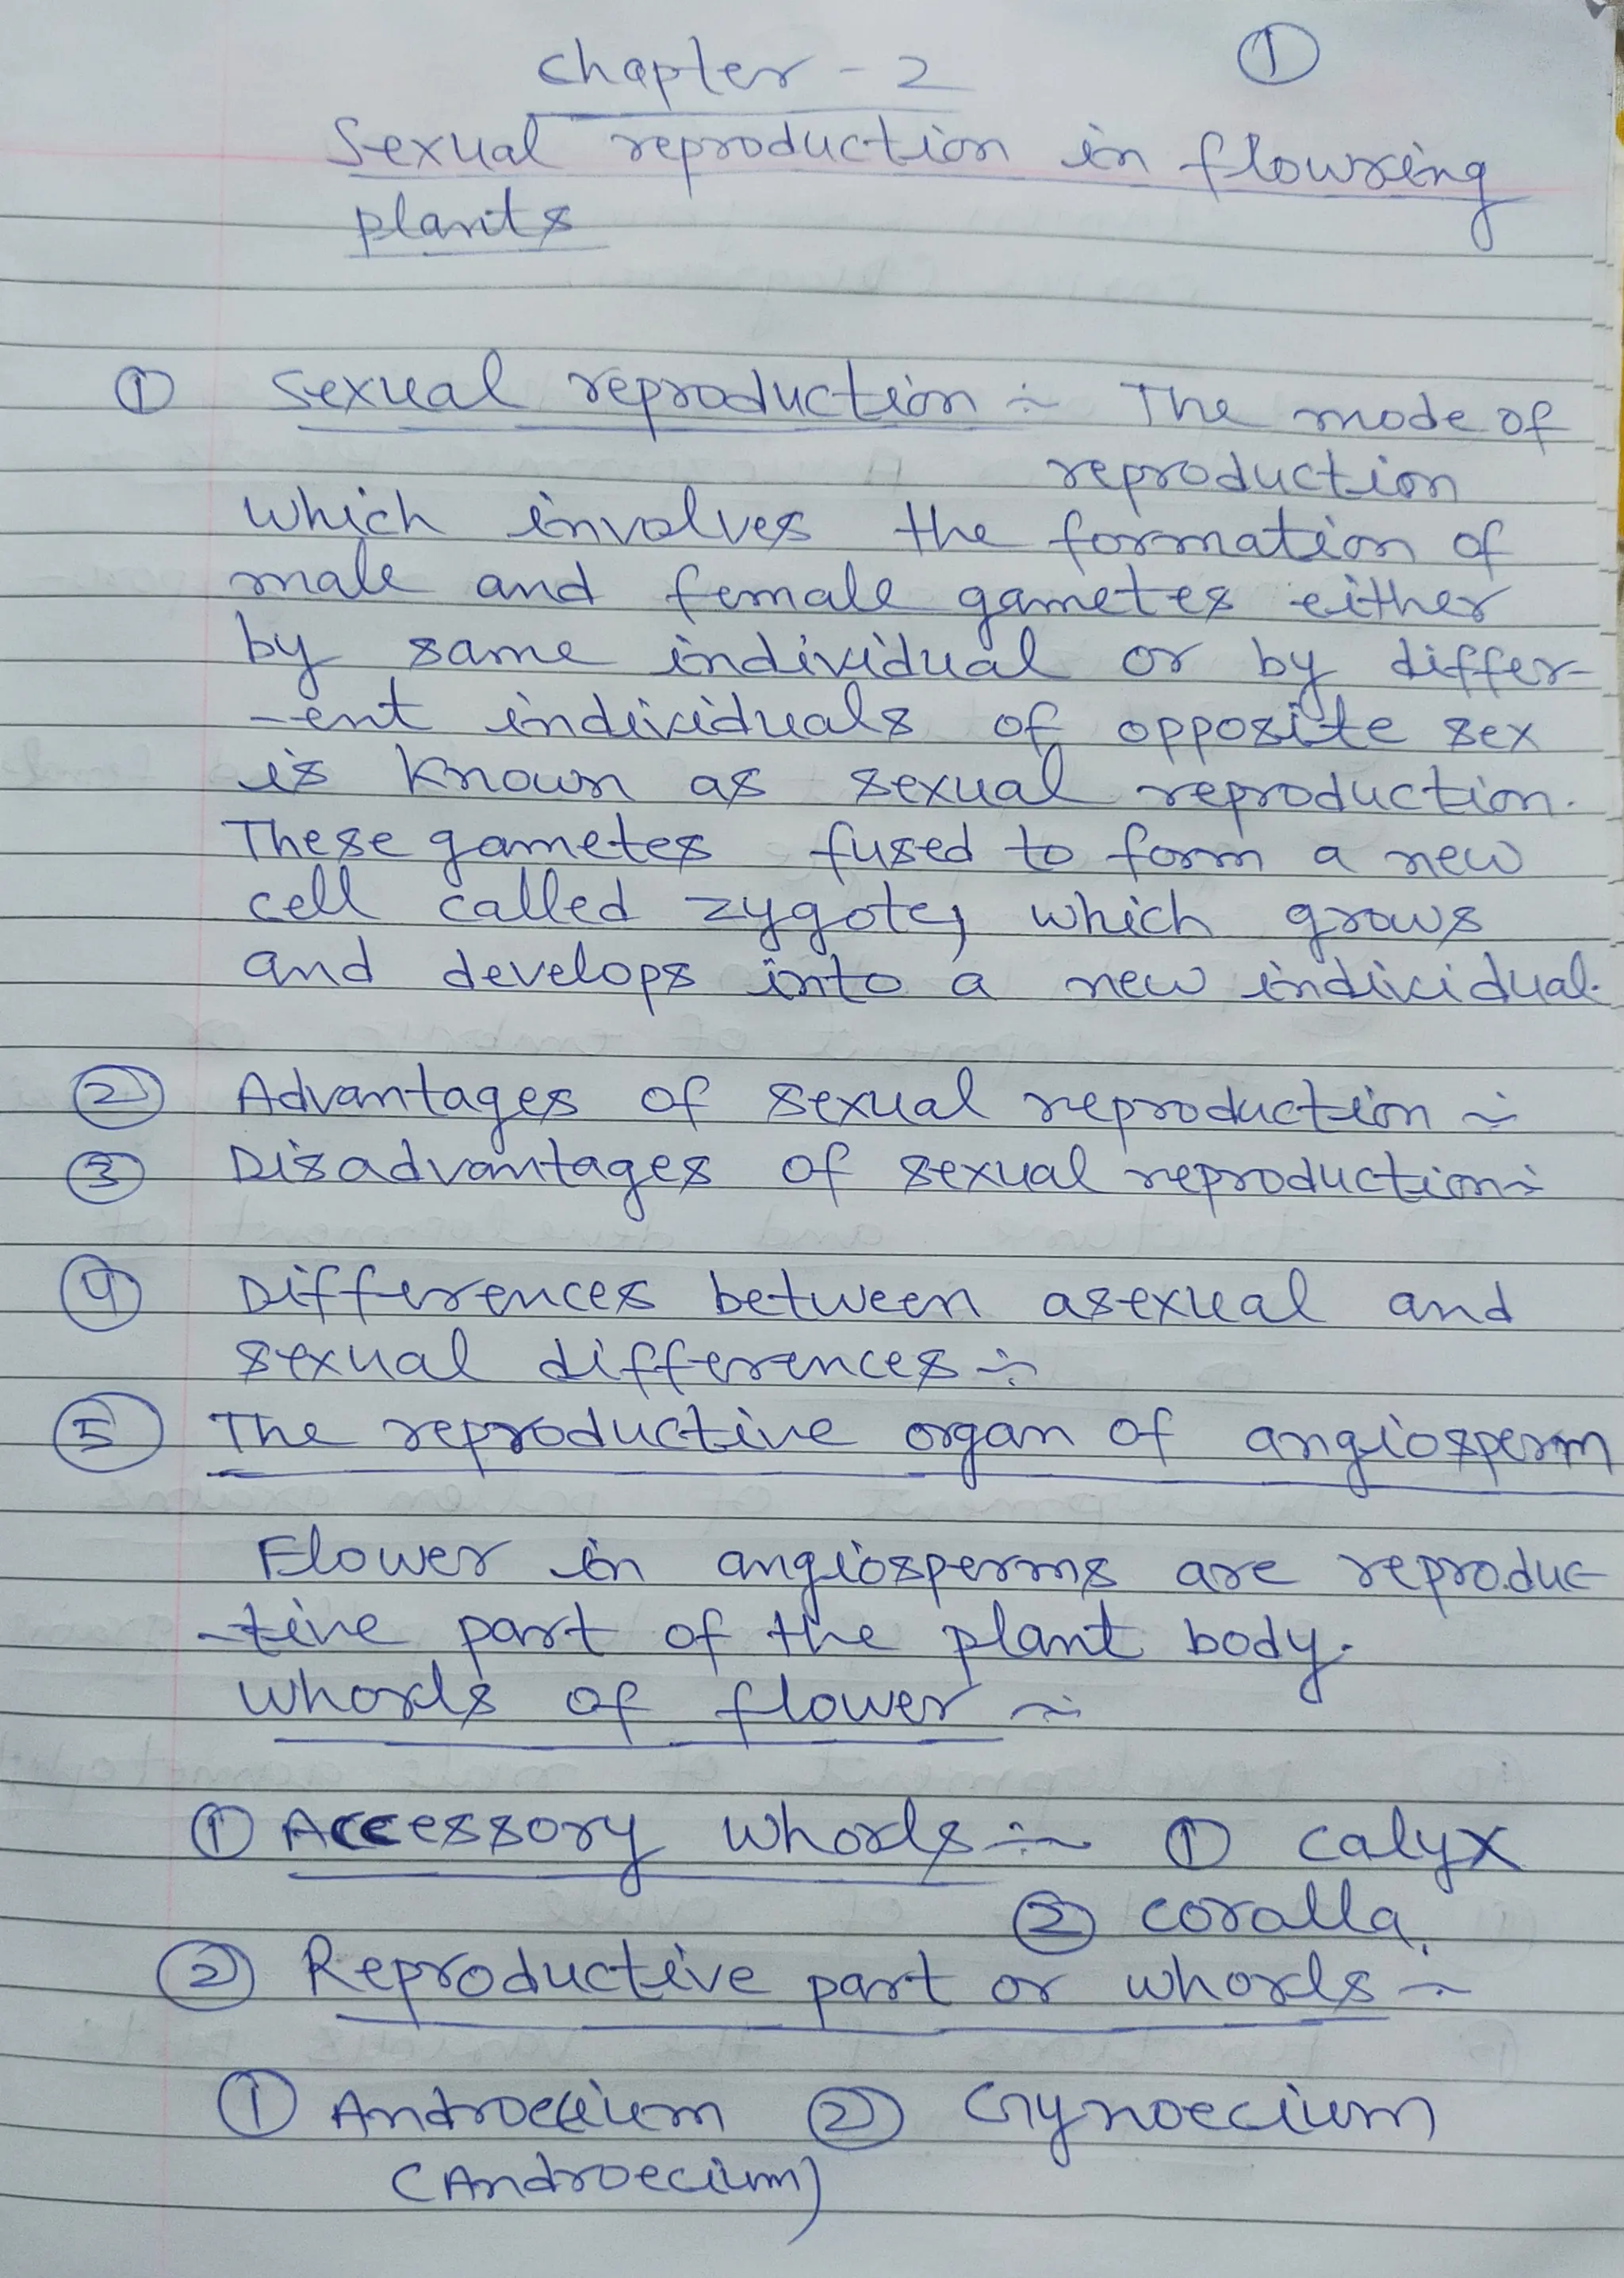 ①
Chapter - 2
Sexual reproduction in flowring
plants
① Sexual reproduction :- The mode of
reproduction
which involves the formation of
male and female gametes either
by same individual or by differ-
-ent individuals of opposite sex
is known as sexual reproduction.
These gametes fused to form a new
cell called zygote, which grows
and develops into a new individual.
② Advantages of sexual reproduction :-
③ Disadvantages of sexual reproduction :-
④ Differences between asexual and
sexual differences :-
⑤ The reproductive organ of angiosperm
Flower in angiosperms are reproduc-
-tive part of the plant body.
Whorls of flower :-
① Accessory whorls :- ① calyx
② coralla.
② Reproductive part or whorls :-
① Androecium ② Gynoecium
(Androecium)